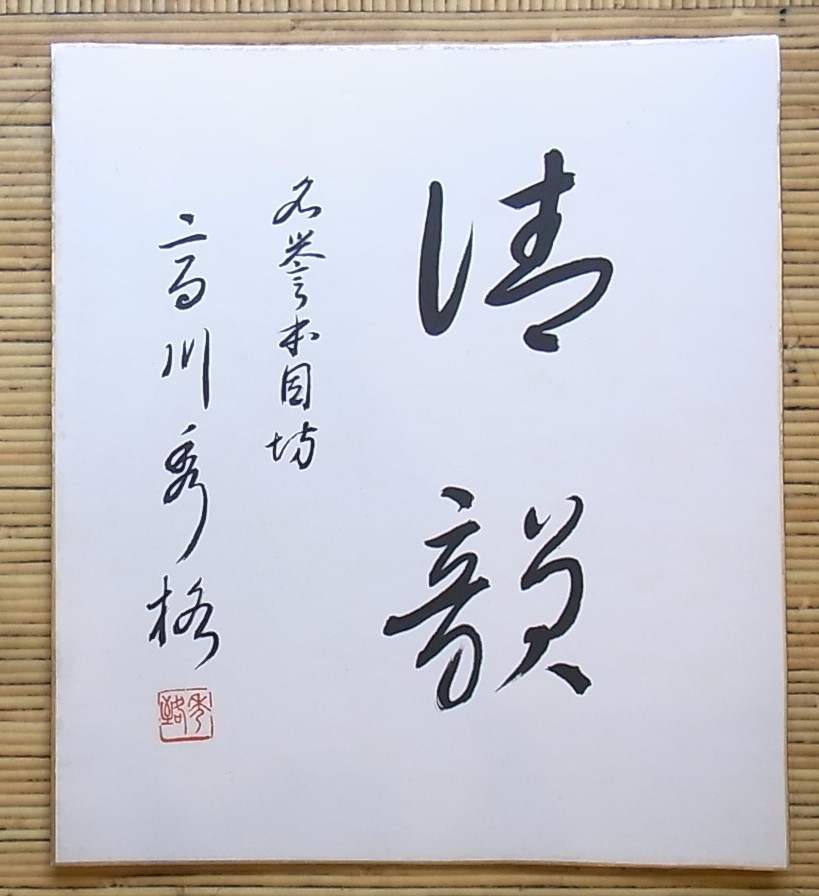 清韻
名誉本因坊
高川秀格
秀格